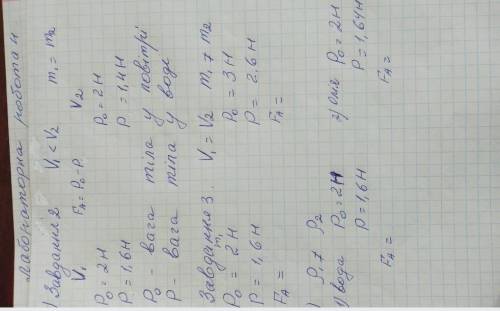 Лабораторна робота н
1) Завдання 2 V₁ < V₂ m₁ = m₂
Fₐ = P₀ - P
V₁ V₂
P₀ = 2H P₀ = 2H
P = 1,6H P = 1,4H
P₀ - вага тіла у повітрі
P - вага тіла у воде
Завдання 3. V₁ = V₂ m₁ 7 m₂
m₁
P₀ = 2H P₀ = 3H
P = 1,6H P = 2,6H
Fₐ = Fₐ =
) ρ₁ 7 ρ₂
1) вода 2) Олія
P₀ = 2H P₀ = 2H
P = 1,6H P = 1,64H
Fₐ = Fₐ =